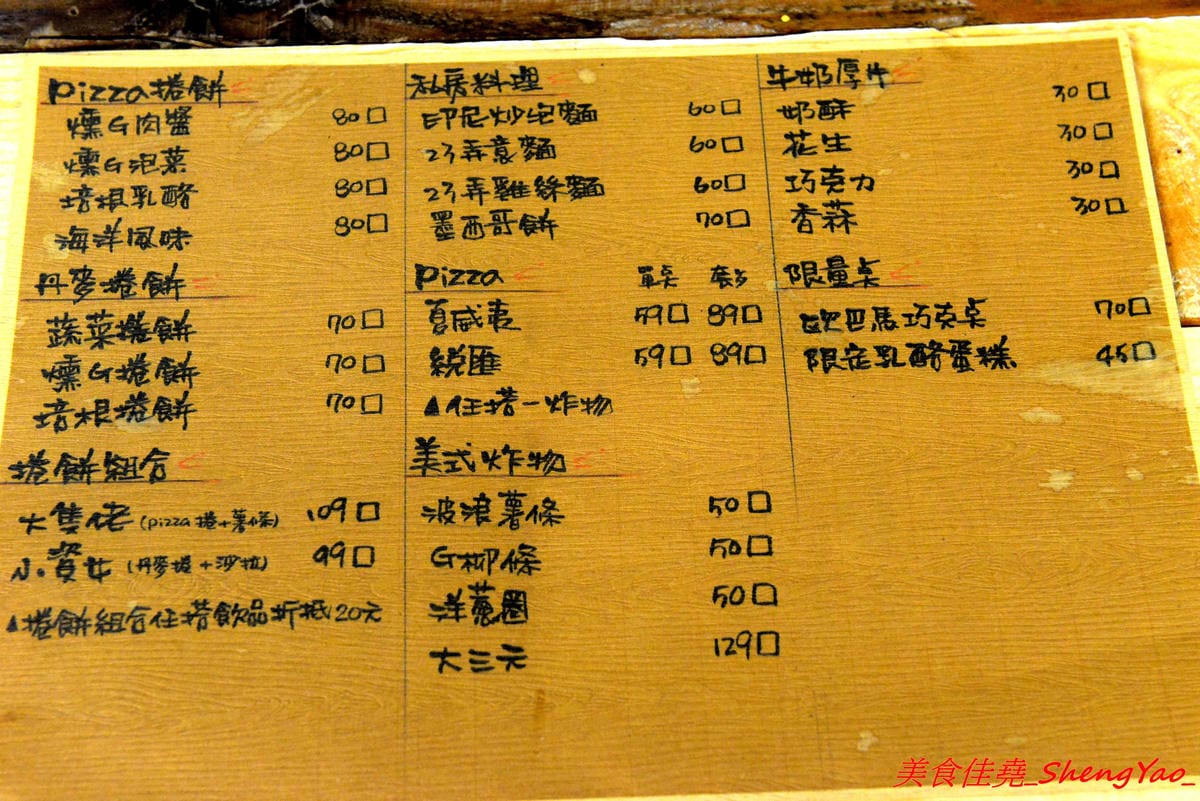 Pizza捲餅
燻G肉醬 80口
燻G泡菜 80口
培根乳酪 80口
海洋風味 80口
丹麥捲餅
蔬菜捲餅 70口
燻G捲餅 70口
培根捲餅 70口
捲餅組合
大隻佬(pizza捲+薯條) 109口
小資女(丹麥捲+沙拉) 99口
▲捲餅組合任搭飲品折抵20元
私房料理
印尼炒泡麵 60口
23弄意麵 60口
23弄雞絲麵 60口
墨西哥餅 70口
Pizza 單点 套歺
夏威夷 59口 89口
總匯 59口 89口
▲任搭一炸物
美式炸物
波浪薯條 50口
G柳條 50口
洋蔥圈 50口
大三元 129口
牛奶厚片
奶酥 30口
花生 30口
巧克力 30口
香蒜 30口
限量点
歐巴馬巧克点 70口
限定乳酪蛋糕 45口
美食佳堯_ShengYao_